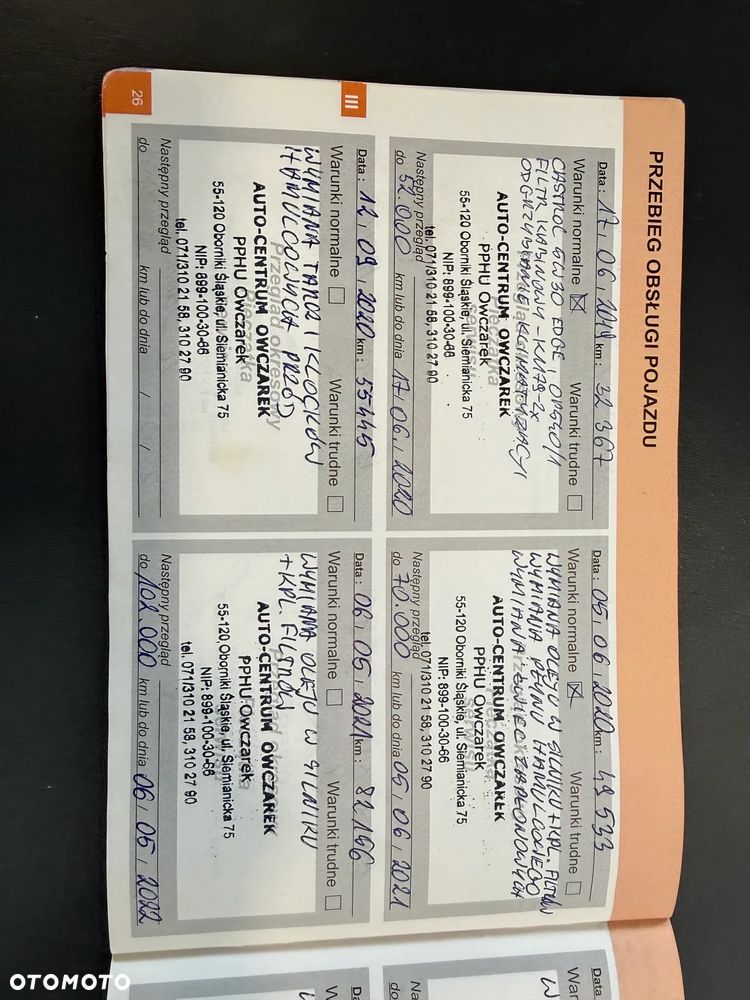 PRZEBIEG OBSŁUGI POJAZDU
Data: 17, 06, 2019 km: 32 367
Warunki normalne ☒ Warunki trudne ☐
CASTROL 5W30 EDGE,
FILTR KABINOWY -
ODGRZYBIANIE KLIMATYZACJI
AUTO-CENTRUM OWCZAREK
PPHU Owczarek
55-120 Oborniki Śląskie, ul. Siemianicka 75
NIP: 899-100-30-66
tel. 071/310 21 58, 310 27 90
Następny przegląd
do 52.000 km lub do dnia 17, 06, 2020
Data: 05, 06, 2020 km: 49 533
Warunki normalne ☒ Warunki trudne ☐
WYMIANA OLEJU W SILNIKU + KPL. FILTRÓW
WYMIANA PŁYNU HAMULCOWEGO
WYMIANA ŚWIEC ZAPŁONOWYCH
AUTO-CENTRUM OWCZAREK
PPHU Owczarek
55-120 Oborniki Śląskie, ul. Siemianicka 75
NIP: 899-100-30-66
tel. 071/310 21 58, 310 27 90
Następny przegląd
do 70.000 km lub do dnia 05, 06, 2021
III
Data: 12, 09, 2020 km: 55445
Warunki normalne ☐ Warunki trudne ☐
WYMIANA TARCZ I KLOCKÓW
HAMULCOWYCH PRZÓD
Przegląd okresowy
AUTO-CENTRUM OWCZAREK
PPHU Owczarek
55-120 Oborniki Śląskie, ul. Siemianicka 75
NIP: 899-100-30-66
tel. 071/310 21 58, 310 27 90
Następny przegląd
do km lub do dnia / /
Data: 06, 05, 2021 km: 82,156
Warunki normalne ☐ Warunki trudne ☐
WYMIANA OLEJU W SILNIKU
+ KPL. FILTRÓW
AUTO-CENTRUM OWCZAREK
PPHU Owczarek
55-120 Oborniki Śląskie, ul. Siemianicka 75
NIP: 899-100-30-66
tel. 071/310 21 58, 310 27 90
Następny przegląd
do 102.000 km lub do dnia 06, 05, 2022
26
Data
War
W
Data:
War
W
OTOMOTO